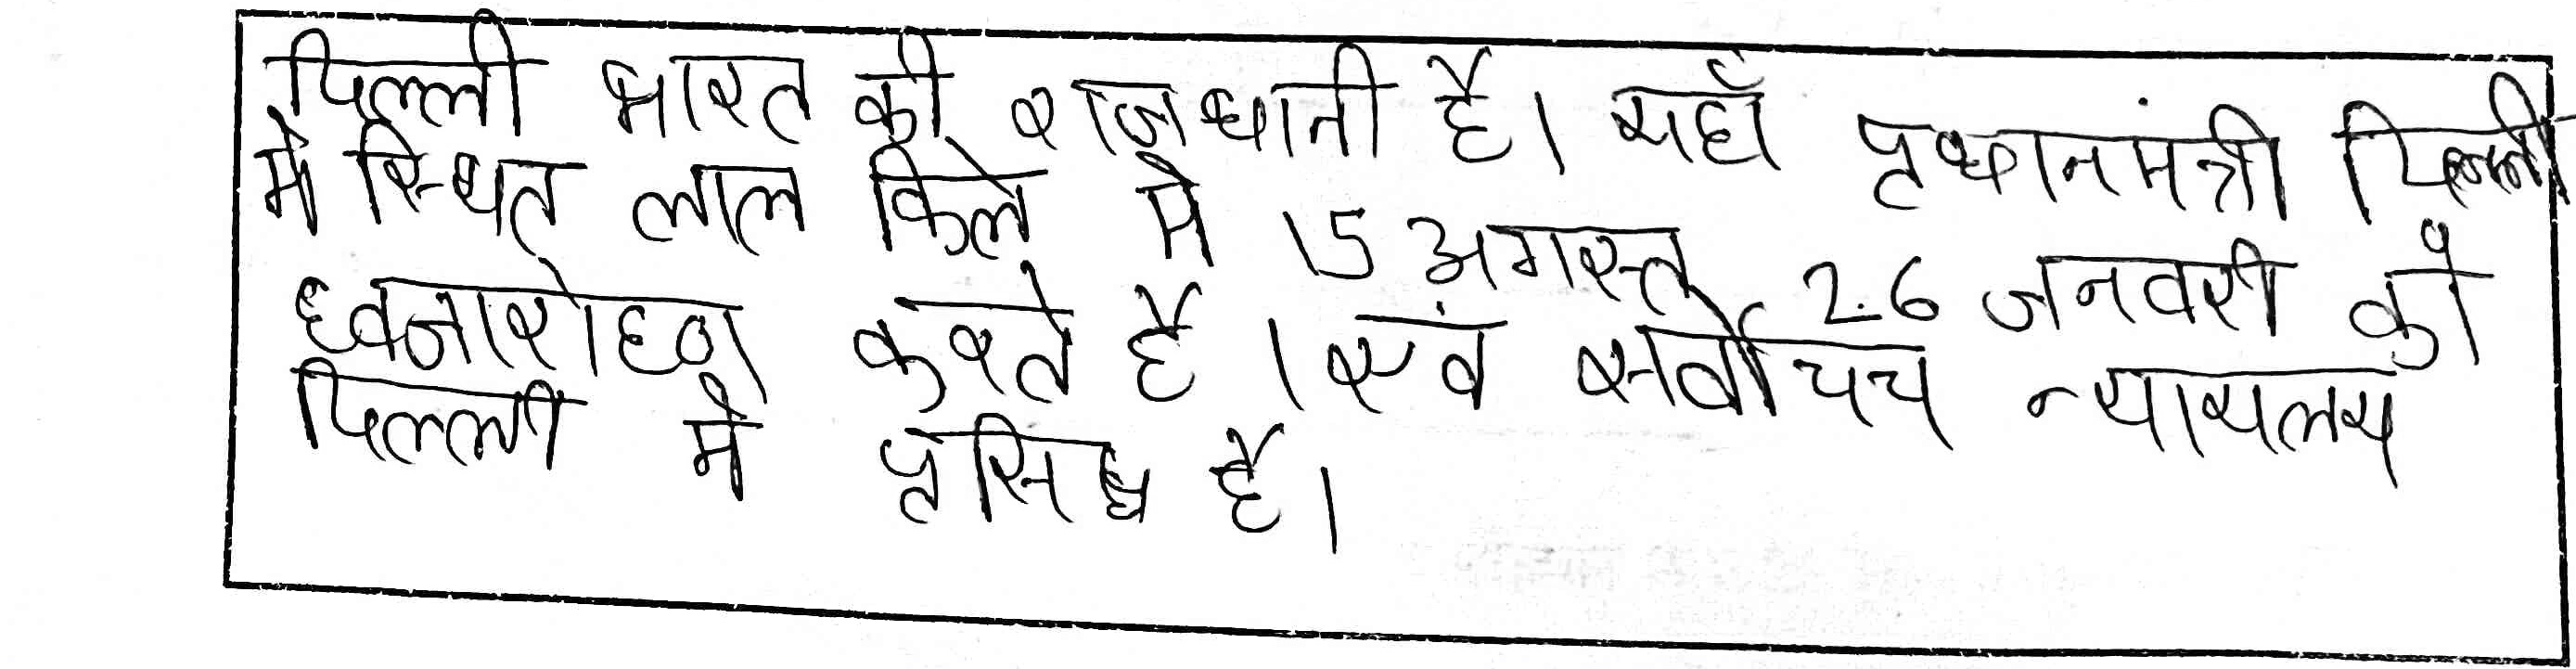 दिल्ली भारत की राजधानी है। यहाँ प्रधानमंत्री दिल्ली
में स्थित लाल किले मे 15 अगस्त 26 जनवरी को
ध्वजारोहण करते है। एवं सर्वोच्च न्यायलय
दिल्ली मे प्रसिध है।